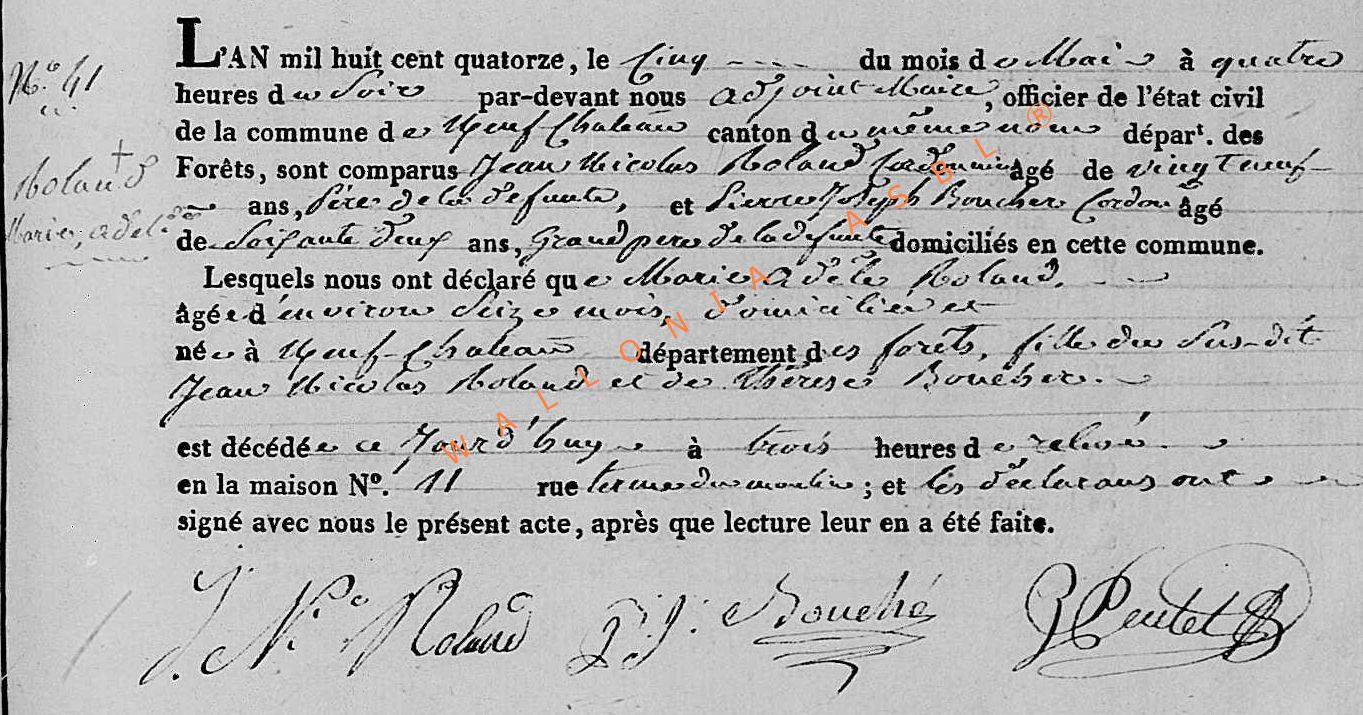 N.º 41
Roland
Marie, adele
L'AN mil huit cent quatorze, le Cinq ---- du mois de Mai à quatre
heures du Soir par-devant nous adjoint Maire, officier de l'état civil
de la commune de Neuf-Chateau canton du même nom départ. des
Forêts, sont comparus Jean Nicolas Roland Cordonnier âgé de vingt neuf
ans, Père de la defunte, et Pierre Joseph Boucher Cordon âgé
de Soixante Deux ans, Grand pere de la defunte domiciliés en cette commune.
Lesquels nous ont déclaré que Marie Adele Roland,
âgée d'environ Seize mois, domiciliée et
née à Neuf-Chateau département des forêts, fille du Sus-dit
Jean Nicolas Roland et de Thérese Boucher.
est décédée ce Jourd'huy à trois heures de relevée
en la maison Nº. 11 rue du moulin ; et les déclarans ont
signé avec nous le présent acte, après que lecture leur en a été faite.
J. N.º Roland P. J. Bouché
WALLONIA ASBL ®